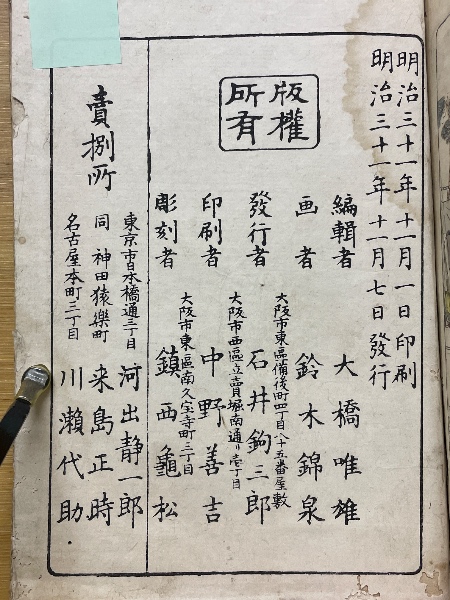 明治三十一年十一月一日印刷
明治三十一年十一月七日發行
版權所有
編輯者 大橋唯雄
画者 鈴木錦泉
大阪市東區備後町四丁目八十五番屋敷
發行者 石井鉤三郎
大阪市西區立賣堀南通リ壱丁目
印刷者 中野善吉
大阪市東區南久宝寺町三丁目
彫刻者 鎮西龜松
東京市日本橋通三丁目 河出静一郎
同 神田猿樂町 来島正時
名古屋本町三丁目 川瀬代助
賣捌所